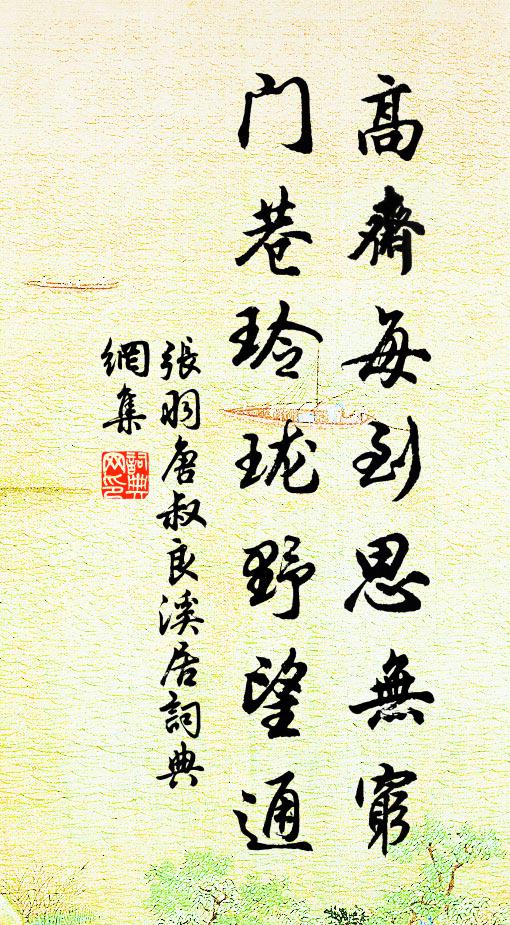 高齋每到思無窮
门巷玲珑野望通
張羽唐叔良溪居詞典
網集
詞典
网